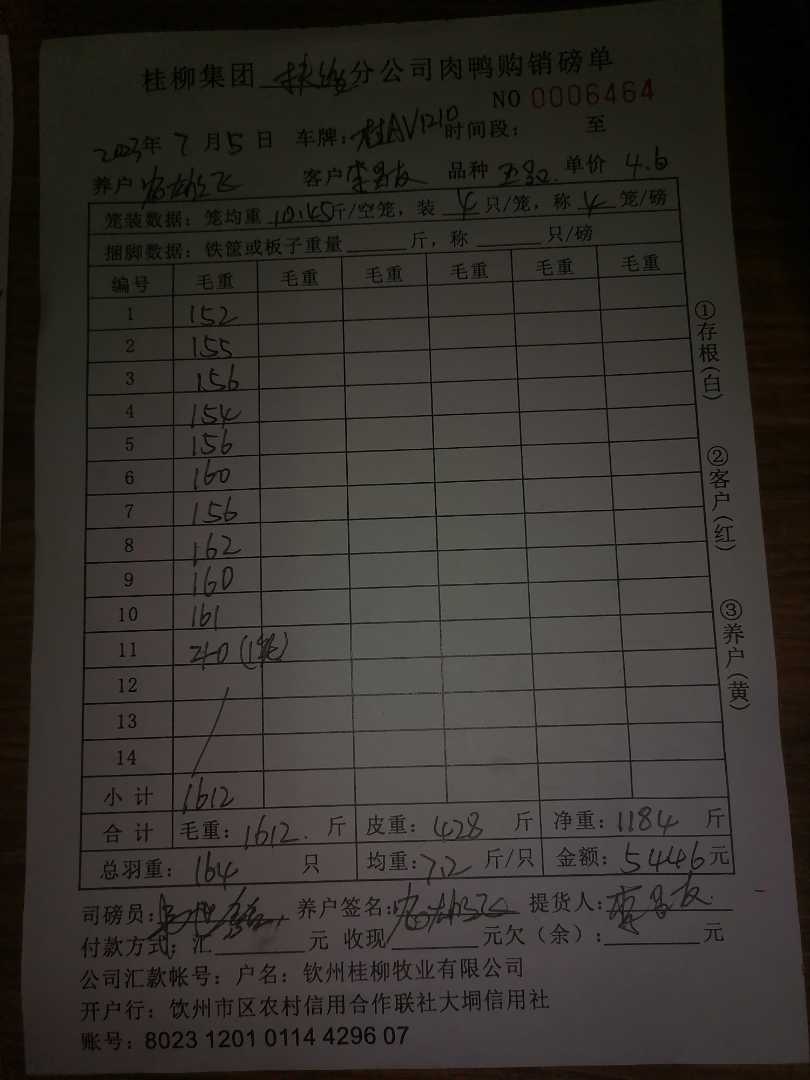 桂柳集团 扶绥 分公司肉鸭购销磅单
NO 0006464
2023年 7 月 5 日 车牌: 桂AV1210 时间段: 至
养户 客户 品种 单价 4.6
笼装数据: 笼均重 10.45斤/空笼, 装 4 只/笼, 称 4 笼/磅
捆脚数据: 铁筐或板子重量 斤, 称 只/磅
编号 毛重 毛重 毛重 毛重 毛重 毛重
1 152
2 155
3 156
4 154
5 156
6 160
7 156
8 162
9 160
10 161
11 40 (1笼)
12
13
14
小计 1612
合计 毛重: 1612. 斤 皮重: 428 斤 净重: 1184 斤
总羽重: 164 只 均重: 7.2 斤/只 金额: 5446元
司磅员: 养户签名: 提货人:
付款方式: 汇 元 收现 元欠(余): 元
公司汇款帐号: 户名: 钦州桂柳牧业有限公司
开户行: 饮州市区农村信用合作联社大垌信用社
账号: 8023 1201 0114 4296 07
①存根(白)
②客户(红)
③养户(黄)